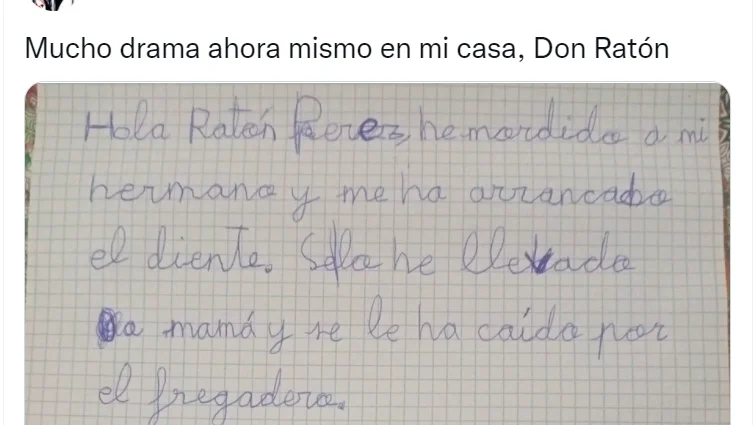 Mucho drama ahora mismo en mi casa, Don Ratón
Hola Ratón Perez, he mordido a mi
hermano y me ha arrancado
el diente. Selo he llevado
a mamá y se le ha caído por
el fregadero.